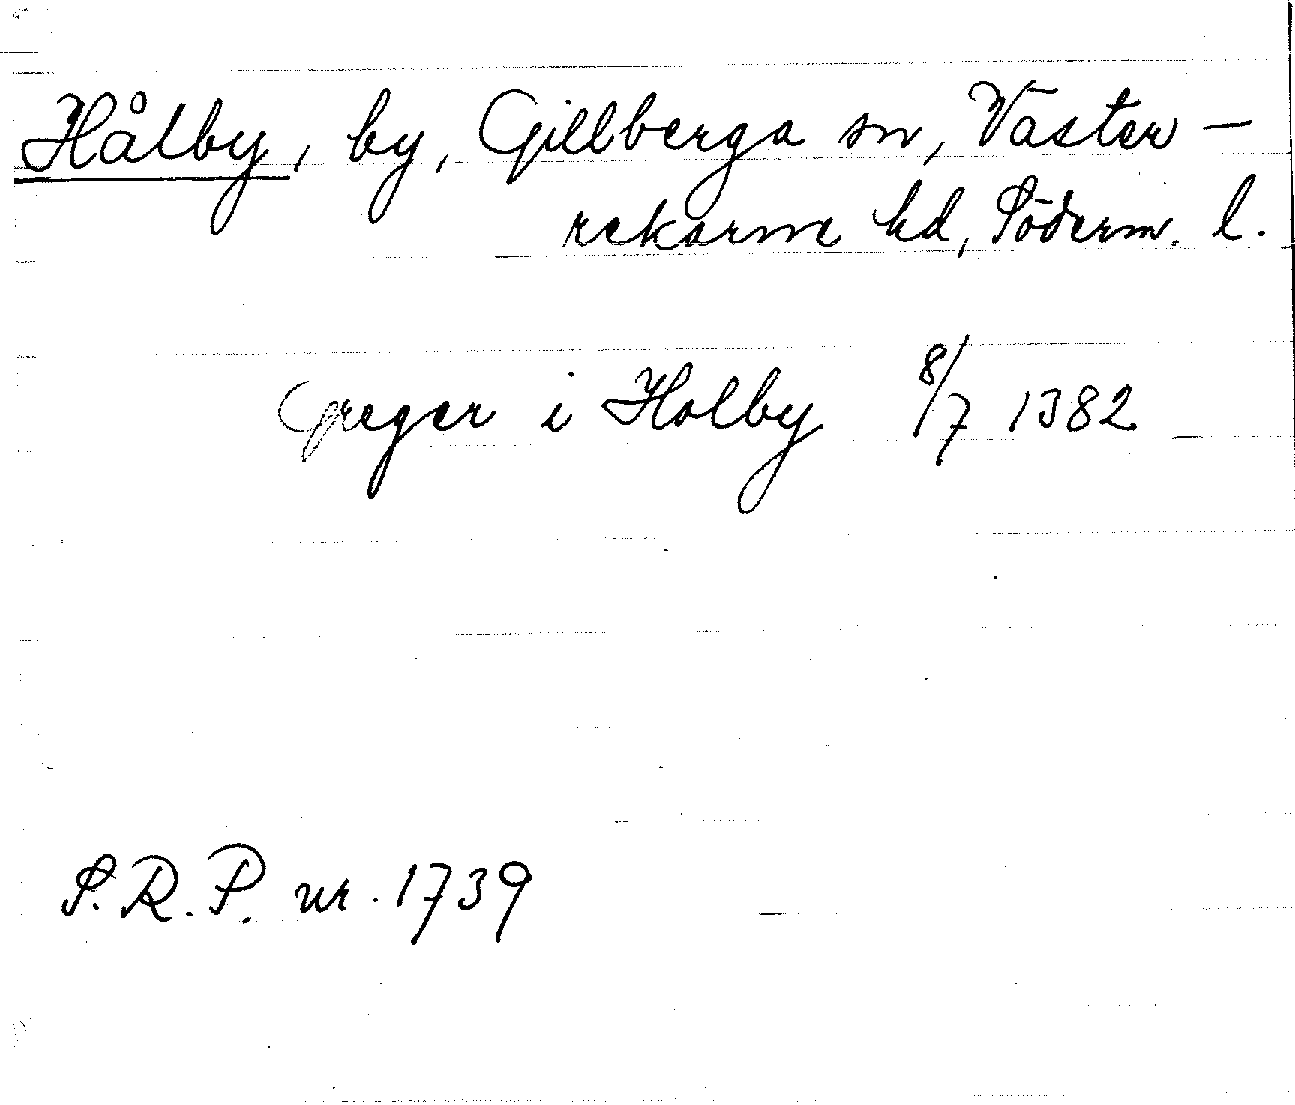 Hålby, by, Gillberga sn, Väster-
rekarne hd, Söderm. l.
Greger i Holby 8/7 1382
S.R.P. nr. 1739